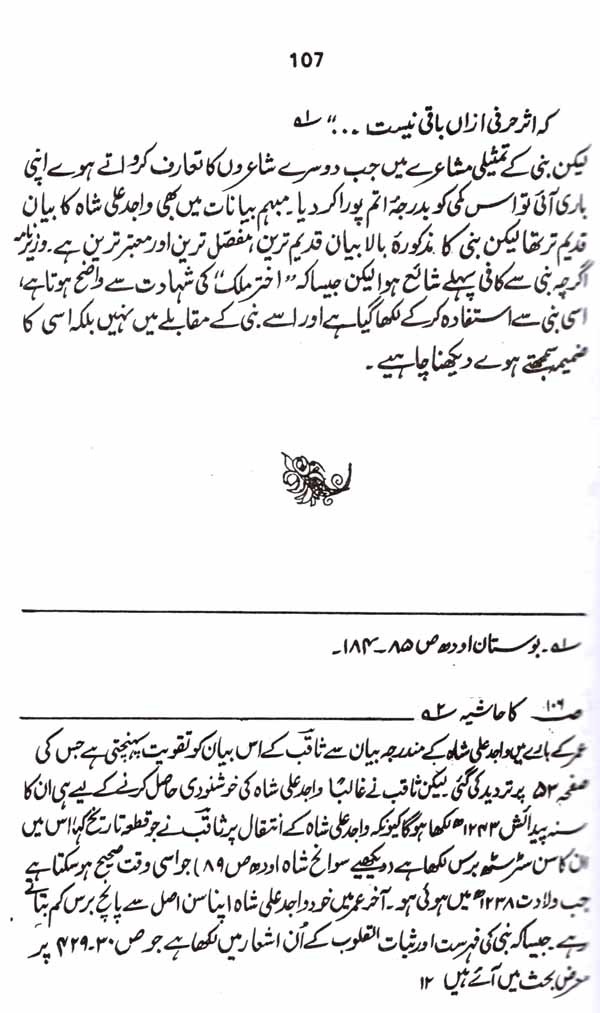 107
کہ اثر حرفی ازاں باقی نیست ..." ؎۱
لیکن بنی کے تمثیلی مشاعرے میں جب دوسرے شاعروں کا تعارف کرواتے ہوے اپنی
باری آئی تو اس کمی کو بدرجۂ اتم پورا کر دیا۔ مبہم بیانات میں بھی واجد علی شاہ کا بیان
قدیم تر تھا لیکن بنی کا مذکورۂ بالا بیان قدیم ترین، مفصّل ترین اور معتبر ترین ہے۔
اگرچہ بنی سے کافی پہلے شائع ہوا لیکن جیسا کہ "اختر ملک" کی شہادت سے واضح ہوتا ہے،
اسی بنی سے استفادہ کر کے لکھا گیا ہے اور اسے بنی کے مقابلے میں نہیں بلکہ اسی کا
ضمیمہ سمجھتے ہوے دیکھنا چاہیے۔
؎۱۔ بوستان اودھ ص ۸۵۔۱۸۴۔
ص ۱۰۶ کا حاشیہ ؎۲
عمر کے بارے میں واجد علی شاہ کے مندرجہ بیان سے ثاقب کے اس بیان کو تقویت پہنچتی ہے جس کی
صفحہ ۵۲ پر تردید کی گئی لیکن ثاقب نے غالباً واجد علی شاہ کی خوشنودی حاصل کرنے کے لیے ہی ان کا
سنہ پیدائش ۱۲۴۳ھ لکھا ہو گا کیونکہ واجد علی شاہ کے انتقال پر ثاقب نے جو قطعہ تاریخ کہا، اس میں
ان کا سن سڑسٹھ برس لکھا ہے (دیکھیے سوانح شاہ اودھ ص ۸۹) جو اسی وقت صحیح ہو سکتا ہے
جب ولادت ۱۲۳۸ھ میں ہوئی ہو۔ آخر عمر میں خود واجد علی شاہ اپنا سن اصل سے پانچ برس کم بتاتے
رہے۔ جیسا کہ بنی کی فہرست اور ثبات القلوب کے اُن اشعار میں لکھا ہے جو ص ۳۰۔۴۲۹ پر
معرض بحث میں آئے ہیں ۱۲